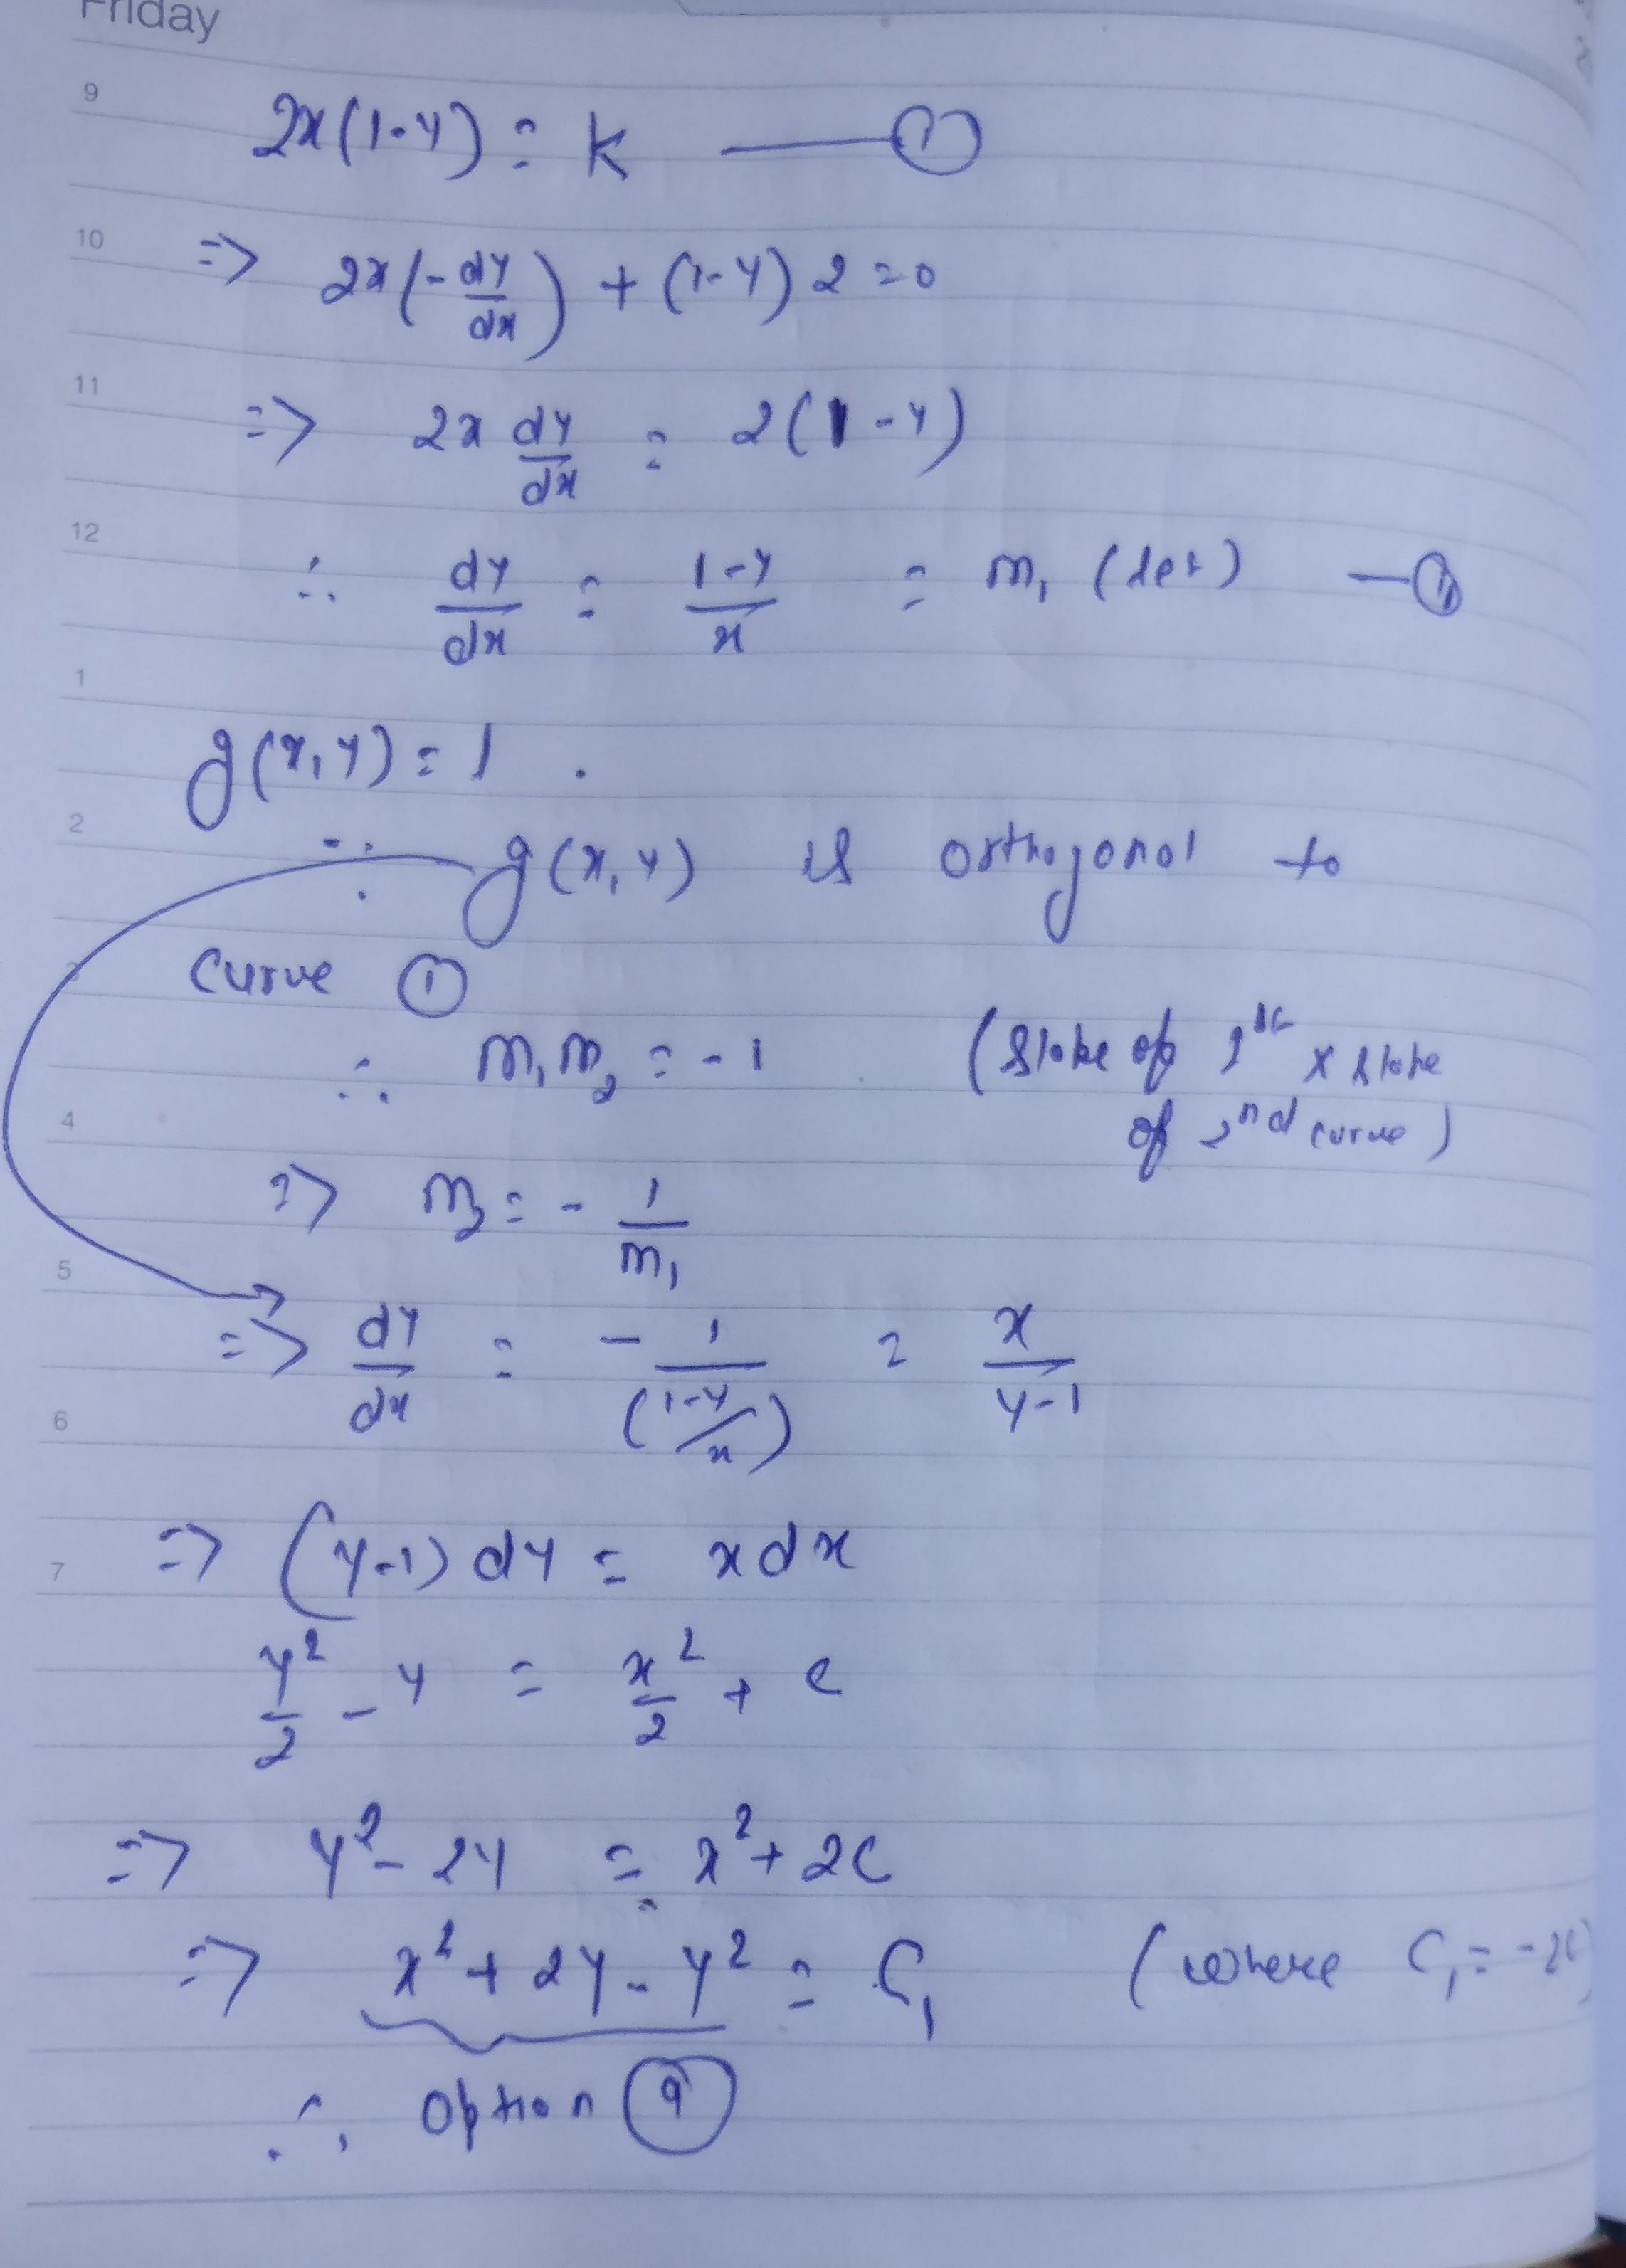 Friday
9
2x(1-y) = k —— ①
10
=> 2x(-dy/dx) + (1-y) 2 = 0
11
=> 2x dy/dx = 2(1-y)
12
∴ dy/dx = (1-y)/x = m₁ (let) —
1
g(x,y) = 1 .
2
∵ g(x,y) is orthogonal to
3
curve ①
∴ m₁m₂ = -1 (slope of 1st x slope
4
of 2nd curve)
=> m₂ = - 1/m₁
5
=> dy/dx = - 1/((1-y)/x) = x/(y-1)
6
7
=> (y-1) dy = x dx
y²/2 - y = x²/2 + c
=> y² - 2y = x² + 2c
=> x² + 2y - y² = C₁ (where C₁ = -2c)
∴ Option